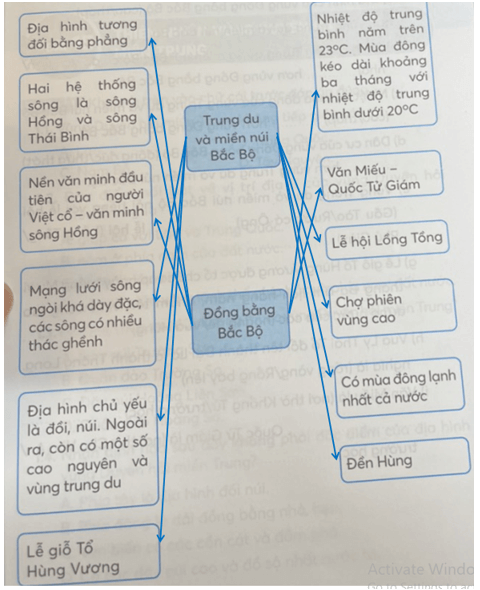 Địa hình tương
đối bằng phẳng
Hai hệ thống
sông là sông
Hồng và sông
Thái Bình
Nền văn minh đầu
tiên của người
Việt cổ – văn minh
sông Hồng
Mạng lưới sông
ngòi khá dày đặc,
các sông có nhiều
thác ghềnh
Địa hình chủ yếu
là đồi, núi. Ngoài
ra, còn có một số
cao nguyên và
vùng trung du
Lễ giỗ Tổ
Hùng Vương
Trung du
và miền núi
Bắc Bộ
Đồng bằng
Bắc Bộ
Nhiệt độ trung
bình năm trên
23°C. Mùa đông
kéo dài khoảng
ba tháng với
nhiệt độ trung
bình dưới 20°C
Văn Miếu –
Quốc Tử Giám
Lễ hội Lồng Tồng
Chợ phiên
vùng cao
Có mùa đông lạnh
nhất cả nước
Đền Hùng
Activate Windo